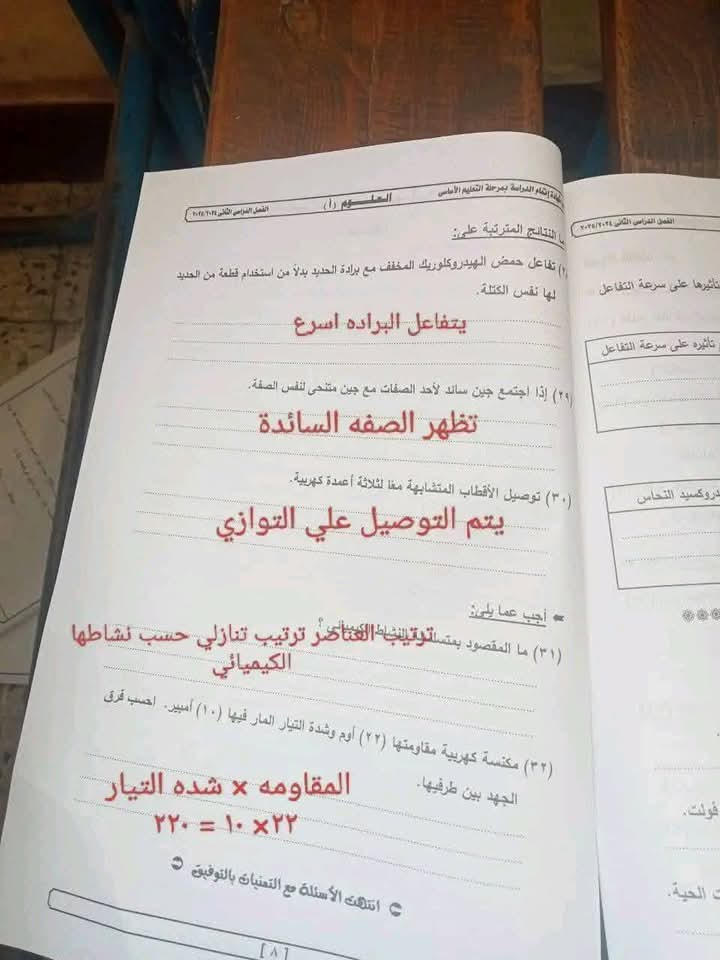 شهادة إتمام الدراسة بمرحلة التعليم الأساسى
العلـــوم (أ)
الفصل الدراسى الثانى ٢٠٢٥/٢٠٢٤
ما النتائج المترتبة على:
تفاعل حمض الهيدروكلوريك المخفف مع برادة الحديد بدلاً من استخدام قطعة من الحديد
لها نفس الكتلة.
يتفاعل البراده اسرع
(٢٩) إذا اجتمع جين سائد لأحد الصفات مع جين متنحى لنفس الصفة.
تظهر الصفه السائدة
(٣٠) توصيل الأقطاب المتشابهة معًا لثلاثة أعمدة كهربية.
يتم التوصيل علي التوازي
أجب عما يلى:
(٣١) ما المقصود بمتسلسلة النشاط الكيميائى ؟
ترتيب العناصر ترتيب تنازلي حسب نشاطها
الكيميائي
(٣٢) مكنسة كهربية مقاومتها (٢٢) أوم وشدة التيار المار فيها (١٠) أمبير. احسب فرق
الجهد بين طرفيها.
المقاومه × شده التيار
٢٢× ١٠ = ٢٢٠
انتهت الأسئلة مع التمنيات بالتوفيق
[ ٨ ]
الفصل الدراسى الثانى ٢٠٢٥/٢٠٢٤
تأثيرها على سرعة التفاعل
تأثيره على سرعة التفاعل
النحاس
فولت.
الحية.